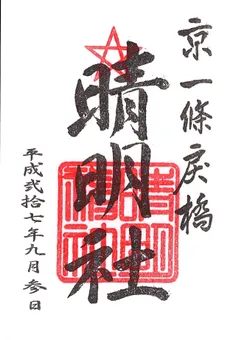 京一條戻橋
晴明社
平成弐拾七年九月参日
晴明神社